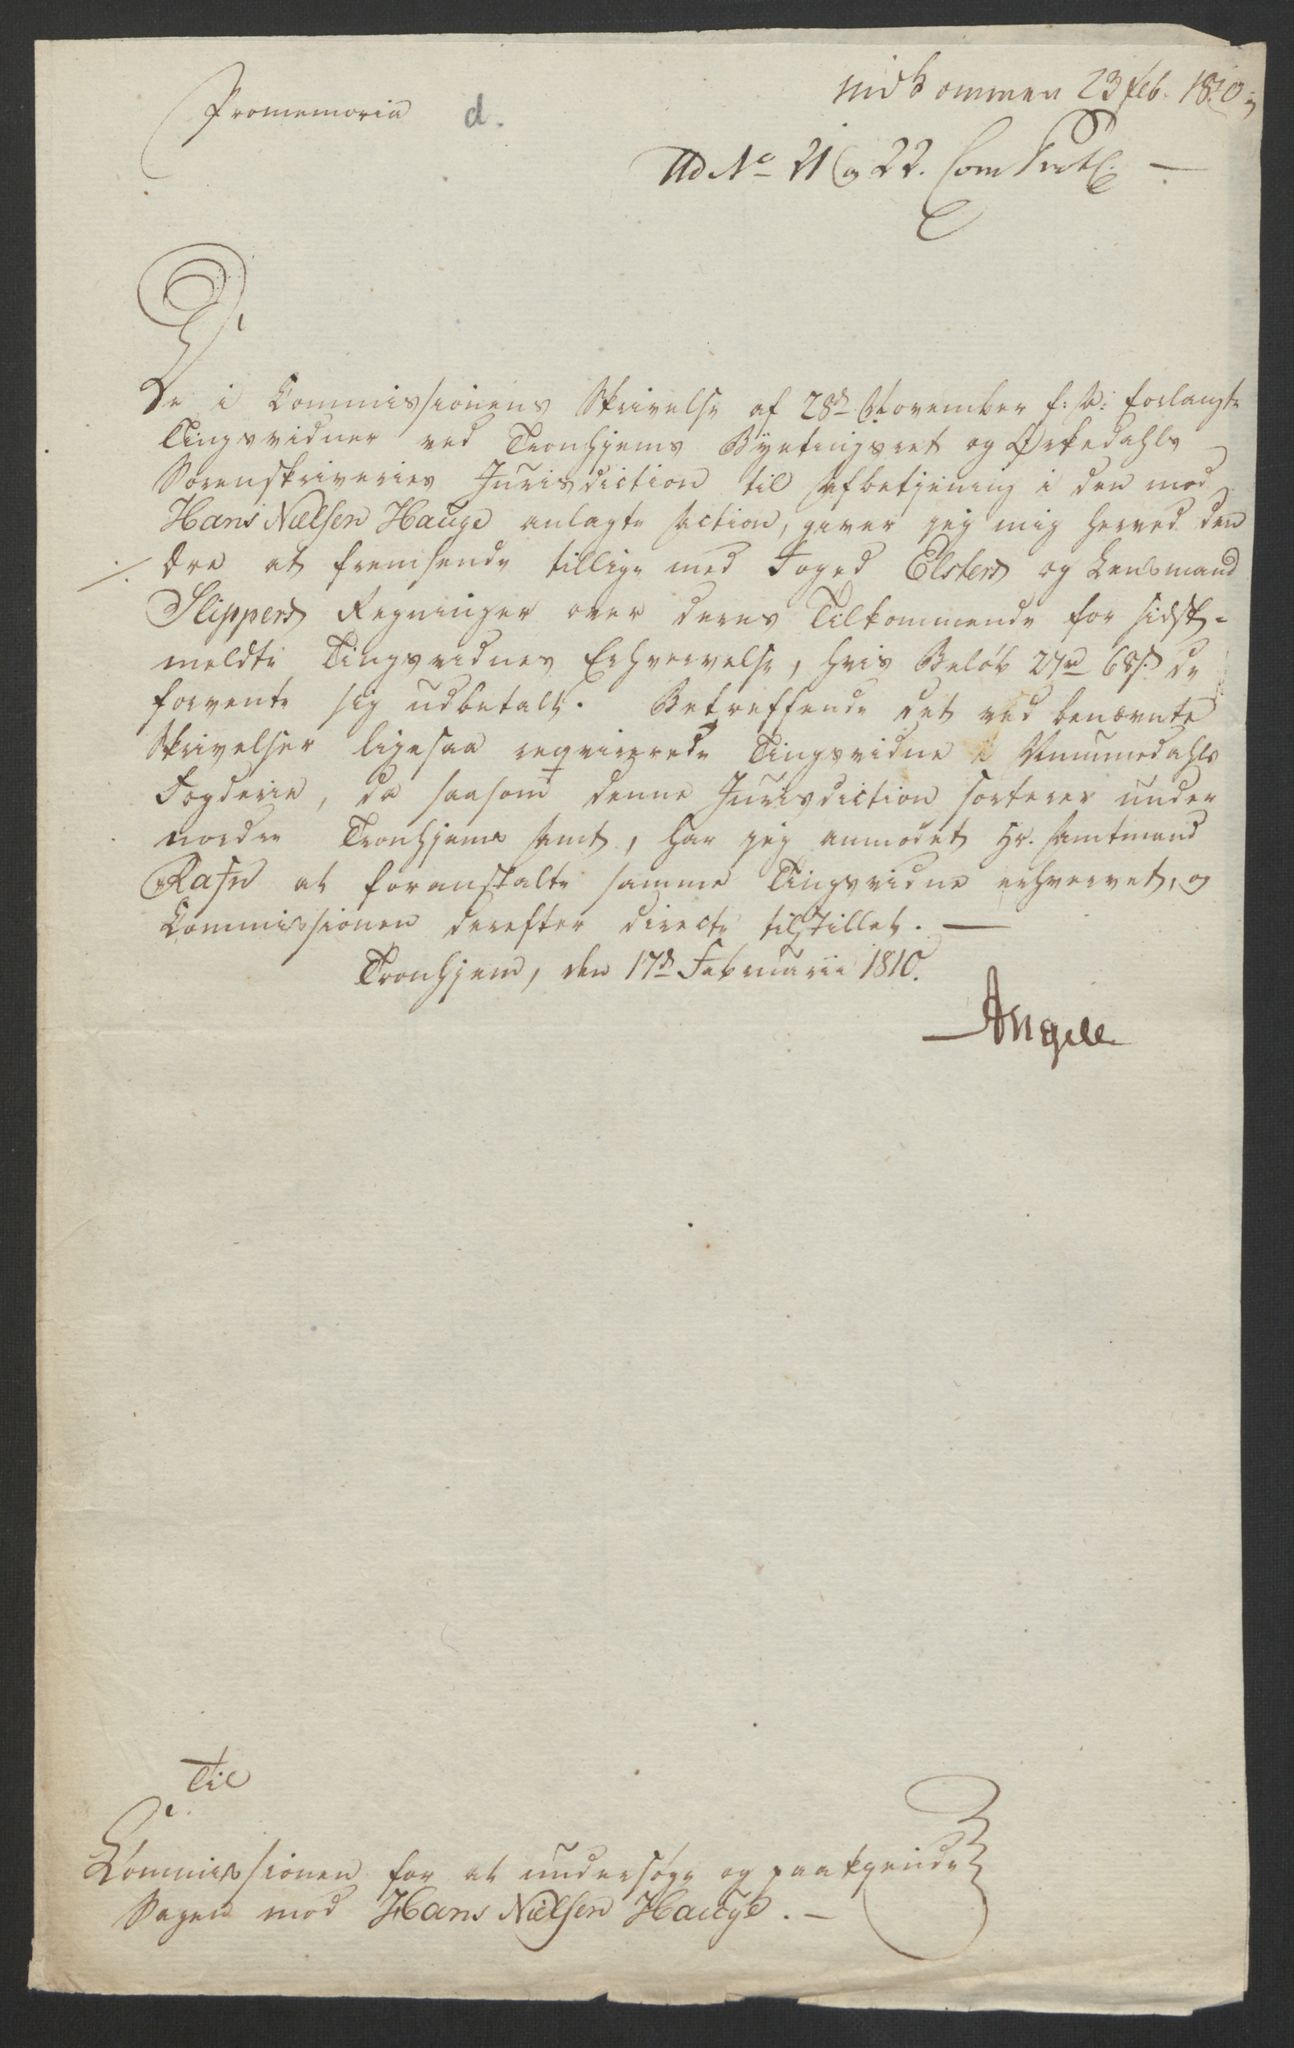 Promemoria
d.
indkommen 23 feb. 1810
Ad No 21 og 22. Com Protc.
De i Commissionens Skrivelse af 28de November f: A: forlangte
Tingsvidner ved Tronhjems Byetingsret og Ørkedahls
Sorenskriveries Jurisdiction til Afbetjening i den mod
Hans Nielsen Hauge anlagte Action, giver jeg mig herved den
Ære at fremsende tillige med Foged Elsters og Lensmand
Slippers Regninger over deres Tilkommende for sidst-
meldte Tingsvidnes Erhvervelse, hvis Beløb 27rd 68s. de
forvente sig udbetalt. Betreffende det ved benævnte
Skrivelser ligesaa reqvirerede Tingsvidne i Nummedahls
Fogderie, da saasom denne Jurisdiction sorterer under
nordre Tronhjems Amt, har jeg anmodet Hr. Amtmand
Rafn at foranstalte samme Tingsvidne erhvervet, og
Commissionen derefter directe tilstillet. —
Tronhjem, den 17de Februarii 1810.
Angell
Til
Commissionen for at undersøge og paakjende
Sagen mod Hans Nielsen Hauge. —